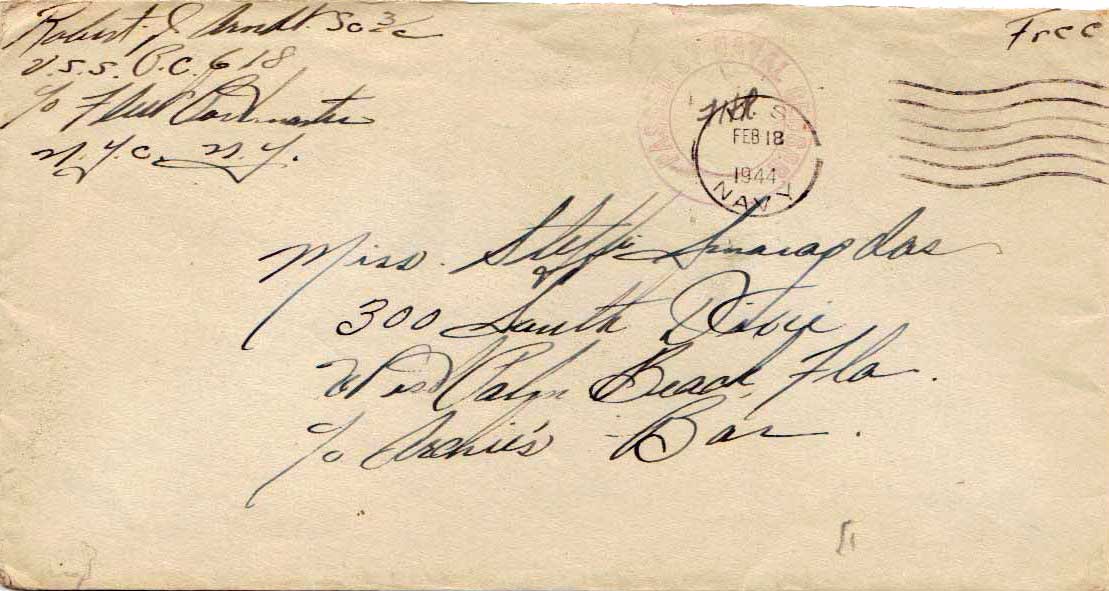 Robert J Arndt. So 3/c
U.S.S. P.C. 618
c/o Fleet Postmaster
N.Y.C. N.Y.
Free
PASSED BY NAVAL CENSOR
U. S.
FEB 18
1944
NAVY
Miss. Steffi Smaragdas
300 South Dixie
West Palm Beach, Fla.
c/o Archie's Bar.